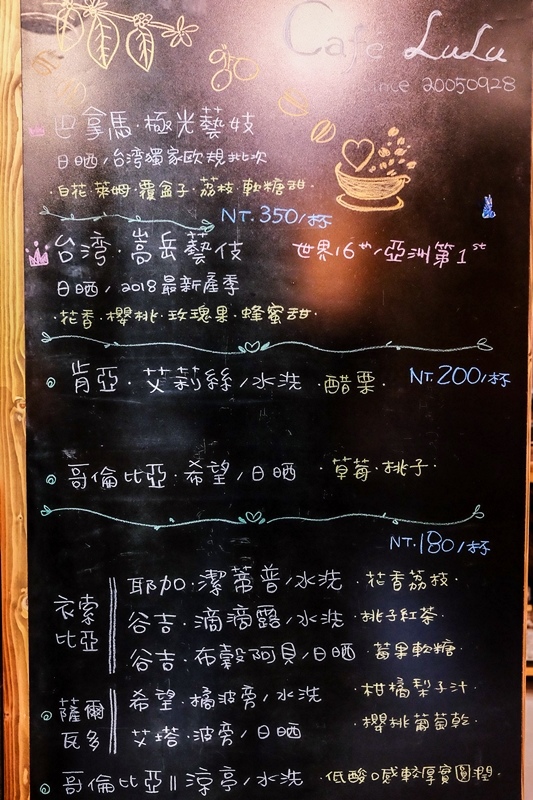 Café LuLu
since 20050928
巴拿馬·極光藝妓
日晒/台湾獨家歐規批次
·白花·萊姆·覆盆子·荔枝·軟糖甜·
NT.350/杯
台湾·嵩岳藝伎 世界16th/亞洲第1st
日晒/2018最新產季
·花香·櫻桃·玫瑰果·蜂蜜甜·
肯亞·艾莉絲/水洗 ·醋栗· NT.200/杯
哥倫比亞·希望/日晒 ·草莓·桃子·
NT.180/杯
衣索比亞
耶加·潔蒂普/水洗 ·花香荔枝·
谷吉·滴滴露/水洗 ·桃子紅茶·
谷吉·布穀阿貝/日晒 ·莓果軟糖·
薩爾瓦多
希望·橘波旁/水洗 ·柑橘梨子汁·
艾塔·波旁/日晒 ·櫻桃葡萄乾·
哥倫比亞||涼亭/水洗 ·低酸口感較厚實圓潤·